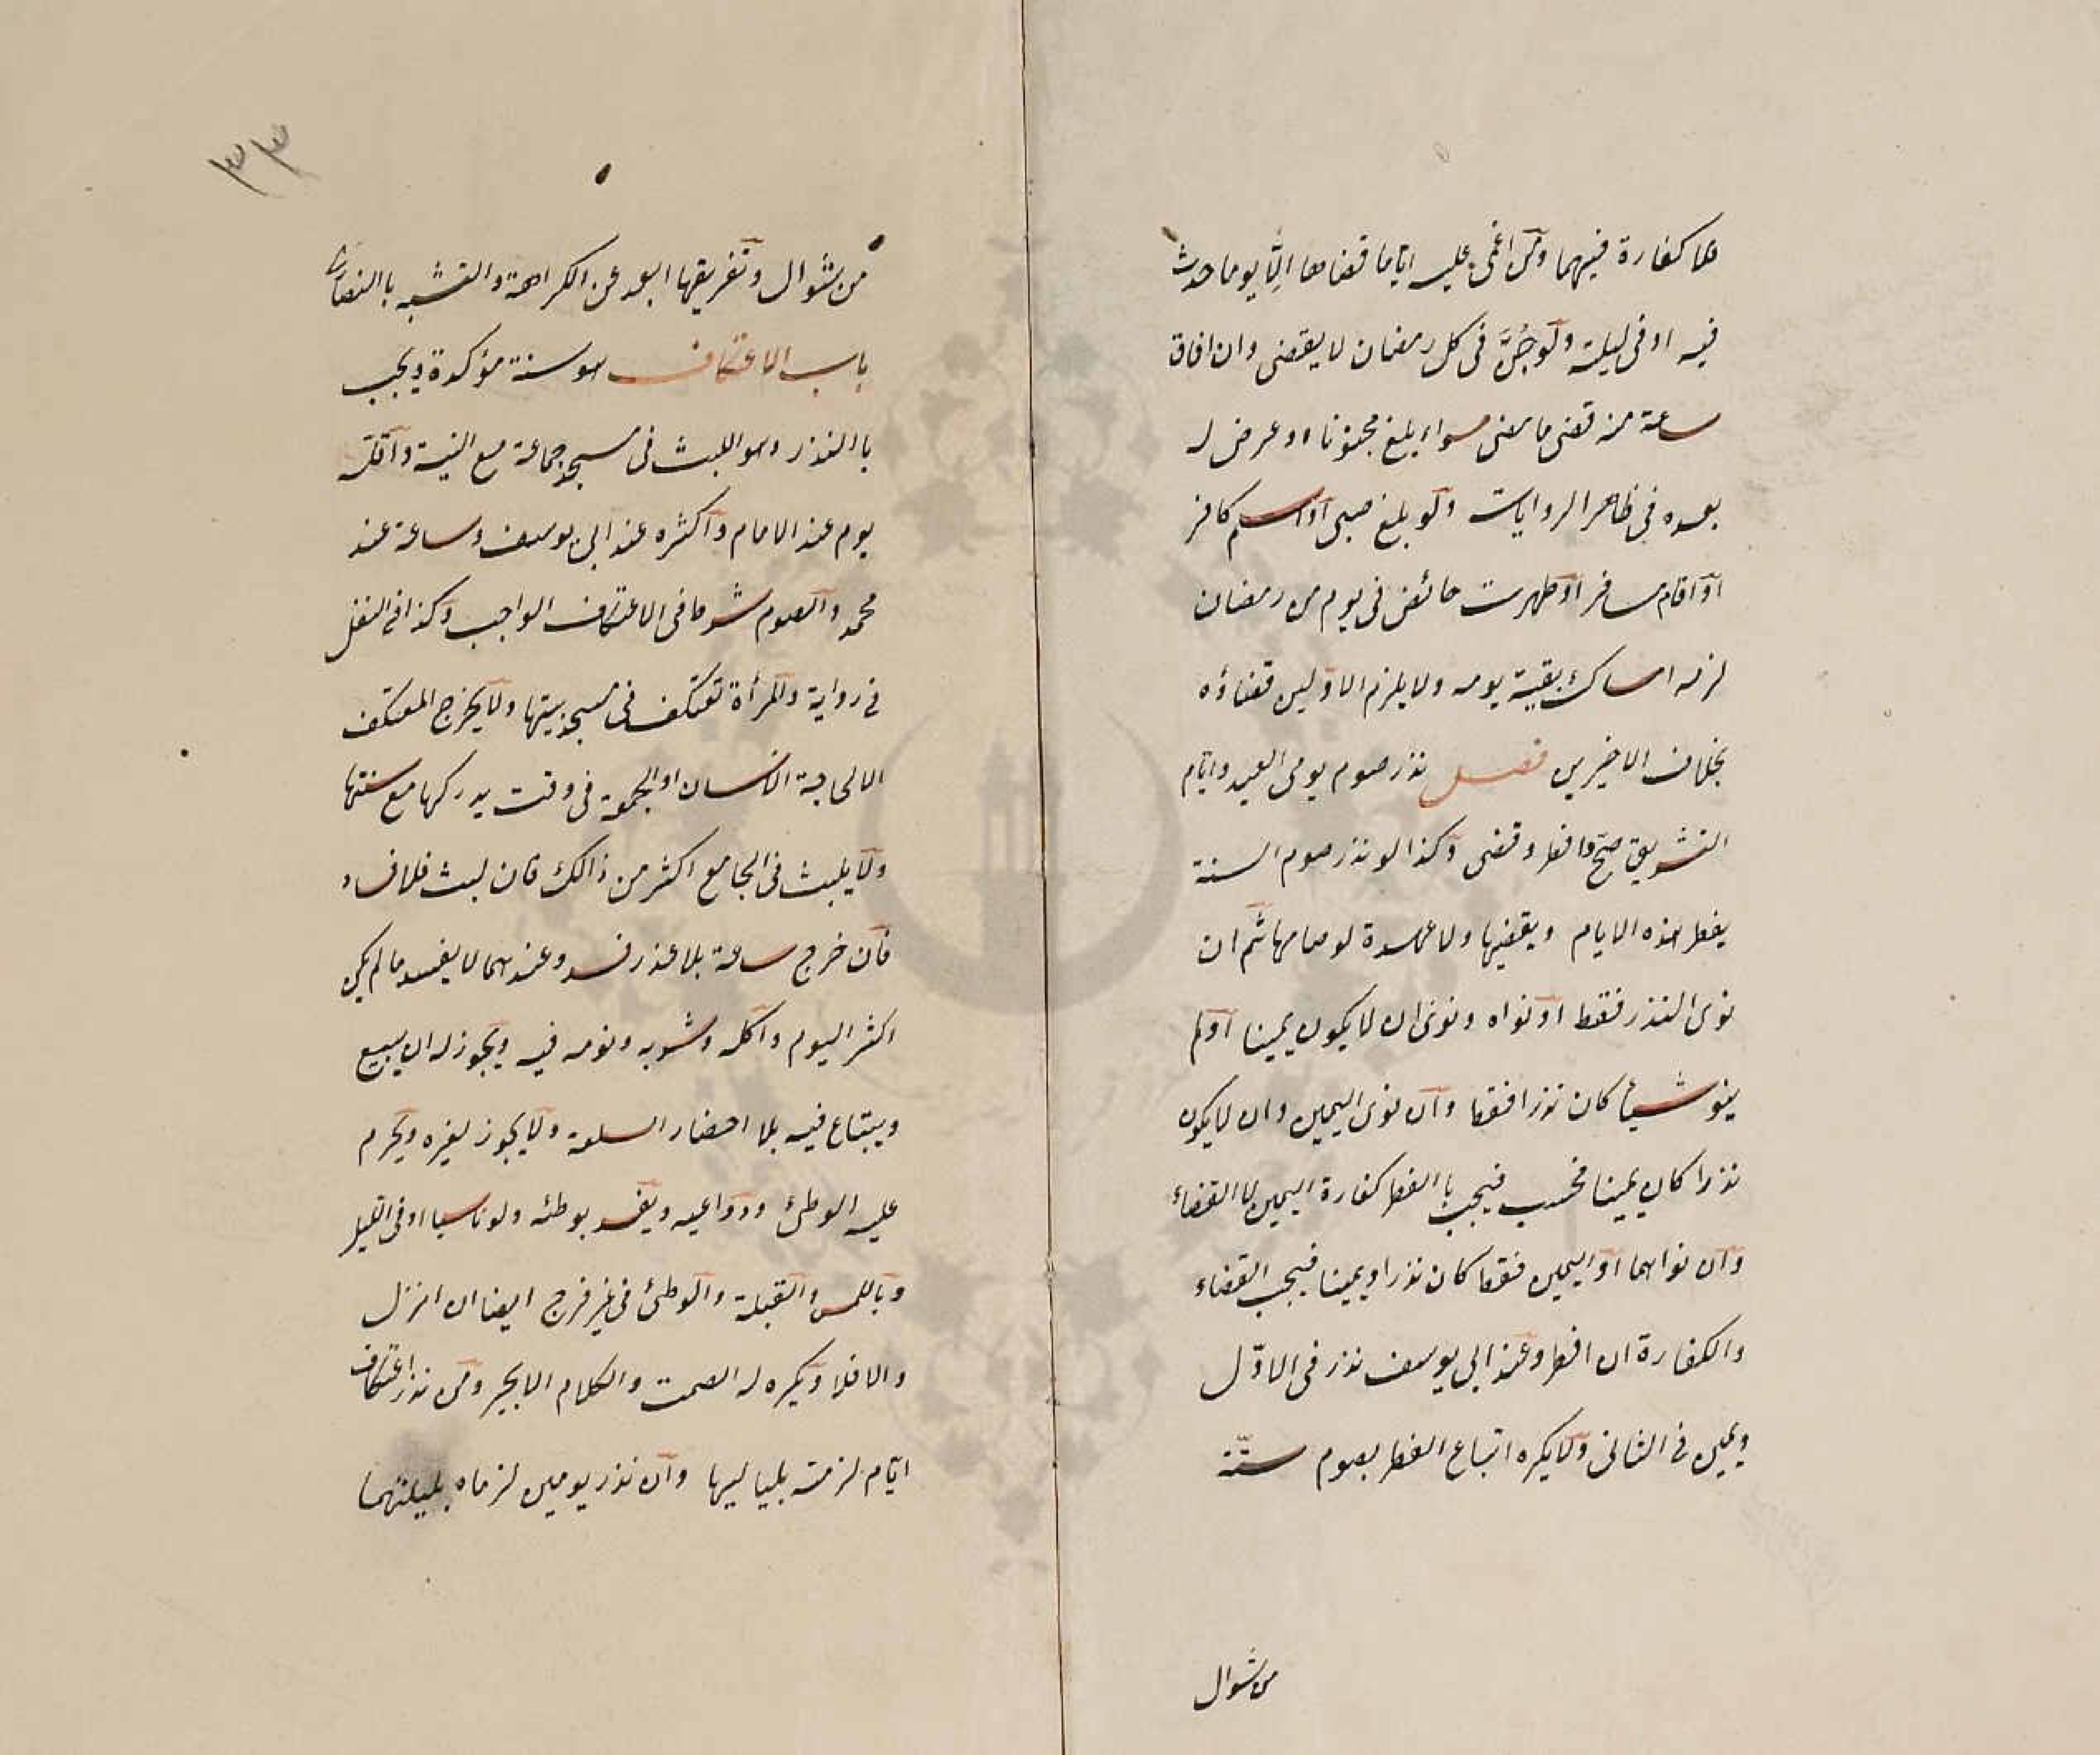 فلا كفارة فيهما ومن اغمى عليه اياما قضاها الّا يوما حدث
فيه او فى ليلته ولو جُنَّ فى كل رمضان لا يقضى وان افاق
ساعة منه قضى ما مضى سواء بلغ مجنونا او عرض له
بعده فى ظاهر الروايات ولو بلغ صبى او اسلم كافر
او اقام مسافر او طهرت حائض فى يوم من رمضان
لزمه امساك بقية يومه ولا يلزم الاوّلين قضاؤه
بخلاف الاخيرين فصل نذر صوم يومى العيد وايّام
التشريق صحّ وافطر وقضى وكذا لو نذر صوم السنة
يفطر هذه الايام ويقضيها ولا عهدة لو صامها ثم ان
نوى النذر فقط او نواه ونوى ان لا يكون يمينا او لم
ينو شيأ كان نذرا فقط وان نوى اليمين وان لا يكون
نذرا كان يمينا فحسب فيجب باالفطر كفارة اليمين لا القضاء
وان نواهما او اليمين فقط كان نذرا ويمينا فيجب القضاء
والكفارة ان افطر وعند ابى يوسف نذر فى الاوّل
ويمين فى الثانى ولا يكره اتباع الفطر بصوم ستّة
من شوال
٣٣
من شوال وتفريقها ابعد عن الكراهة والتشبه باالنصارى
باب الاعتكاف هو سنة مؤكدة ويجب
باالنذر وهو اللبث فى مسجد جماعة مع النية واقله
يوم عند الامام واكثره عند ابى يوسف وساعة عند
محمد والصوم شرط فى الاعتكاف الواجب وكذا فى النفل
فى رواية والمرأة تعتكف فى مسجد بيتها ولا يخرج المعتكف
الا لحاجة الانسان او الجمعة فى وقت يدركها مع سنتها
ولا يلبث فى الجامع اكثر من ذالك فان لبث فلا فساد
فان خرج ساعة بلا عذر فسد وعندهما لا يفسد ما لم يكن
اكثر اليوم واكله وشربه ونومه فيه ويجوز له ان يبيع
ويبتاع فيه بلا احضار السلعة ولا يجوز لغيره ويحرم
عليه الوطئ ودواعيه ويفسد بوطئه ولو ناسيا او فى الليل
وباللمس والقبلة والوطئ فى غير فرج ايضا ان انزل
والا فلا ويكره له الصمت والكلام الا بخير ومن نذر اعتكاف
ايّام لزمته بلياليها وان نذر يومين لزماه بليلتهما